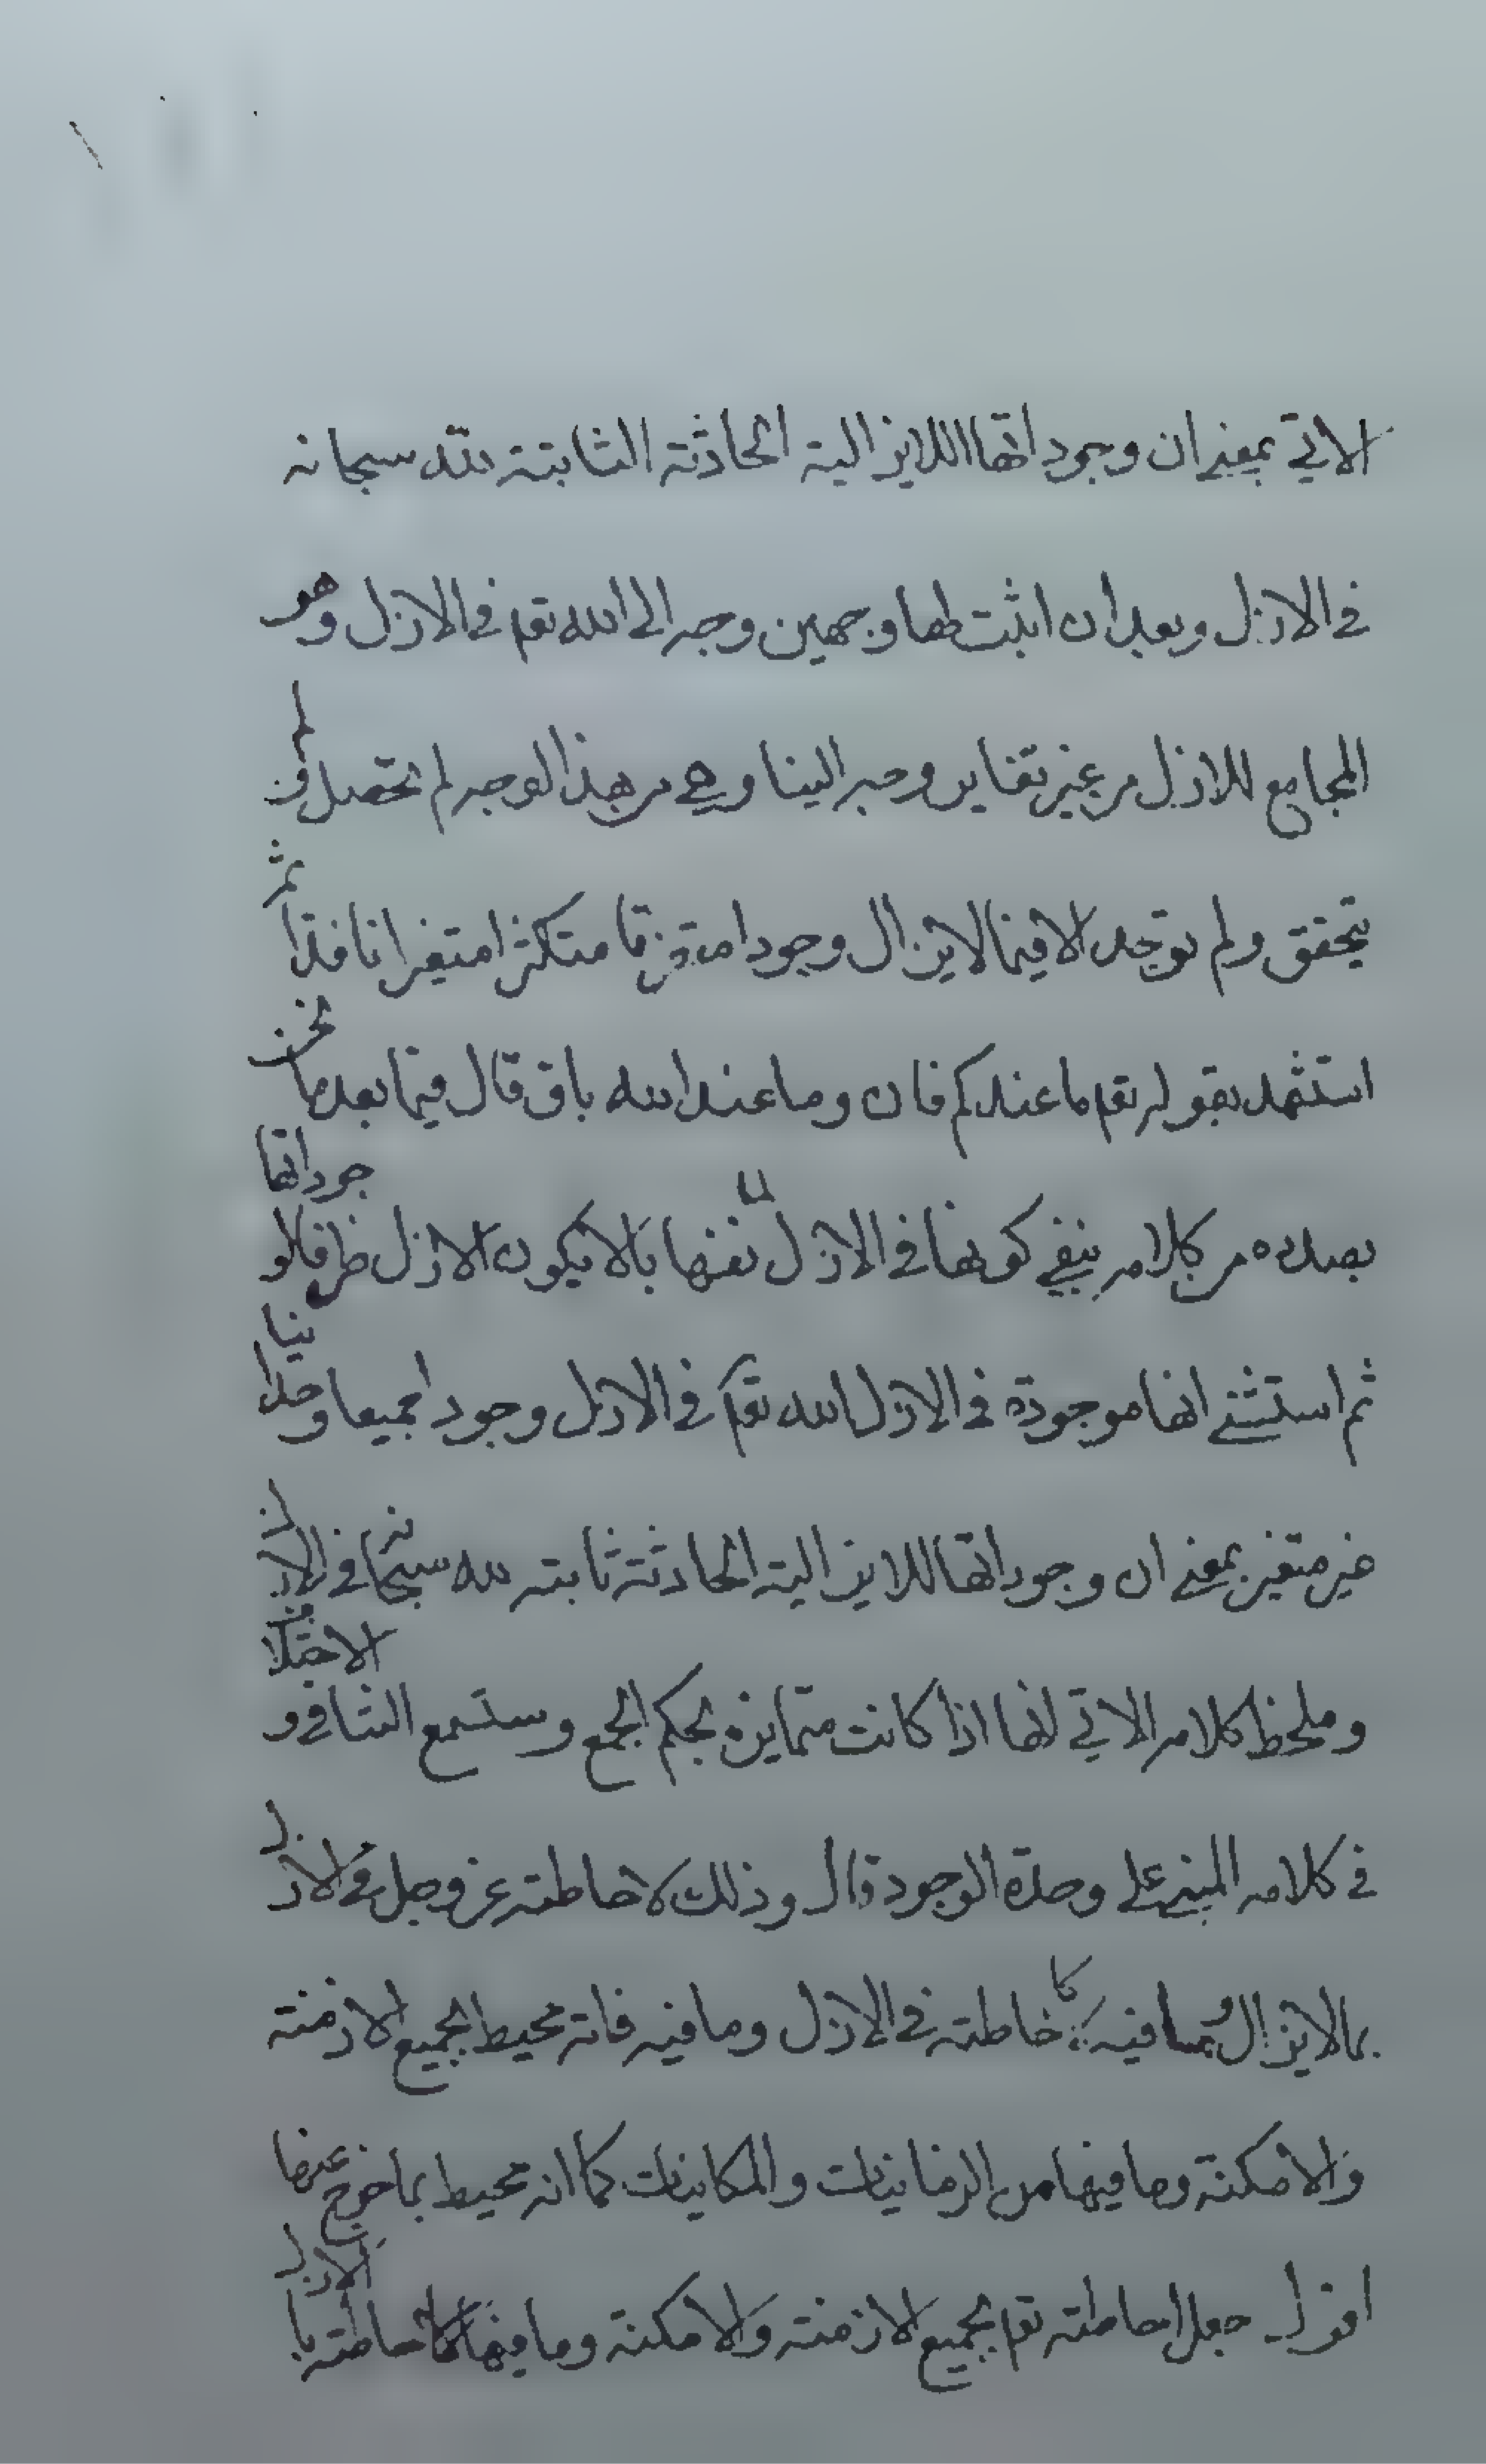 الاتي بمعنى ان وجوداتها اللايزالية الحادثة الثابتة لله سبحانه
في الازل وبعد ان اثبت لها وجهين وجه الى الله تعم في الازل وهو
المجامع للازل من غير تغاير ووجه الينا وهي من هذا الوجه لم تحصل ولم
يتحقق ولم توجد الا فيما لايزال وجودا متفرقا متكثرا متغيرا نافدا ثم
استشهد بقوله تعم ما عندكم فان وما عند الله باق قال فيما بعد ما نحن
بصدده من كلامه ينفي كونها في الازل لما نفيها بالا يكون الازل ظرفا لوجوداتها
ثم استثنى انها موجودة في الازل لله تعم في الازل وجودا جميعا وحدانيا
غير متغير بمعنى ان وجوداتها اللايزالية الحادثة ثابتة لله سبحانه في الازل
وملخظ كلامه الاتي انها اذا كانت متمايزة بحكم الجمع وستسمع التنافي و الاختلاف
في كلامه المبني على وحدة الوجود قال وذلك لاحاطته عز وجل في الازل
بما لايزال وبما فيه كاحاطته في الازل وما فيه فانه محيط بجميع الازمنة
والامكنة وما فيها من الزمانيات والمكانيات كما انه محيط بما خرج عنها
اقول جعل احاطته تعم بجميع الازمنة والامكنة وما فيها كاحاطته بالازل